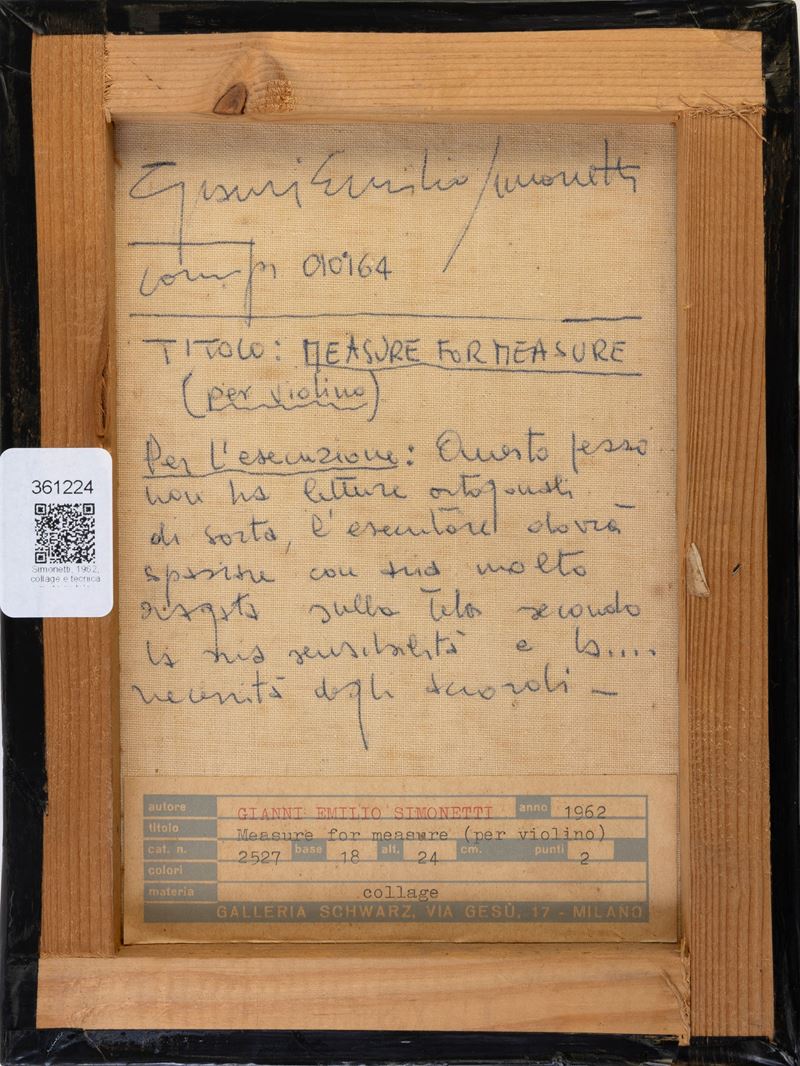 Gianni Emilio Simonetti
comp. 010164
TITOLO: MEASURE FOR MEASURE
(per violino)
Per l'esecuzione: Questo pezzo
non ha letture ortogonali
di sorta, l'esecutore dovrà
spaziare con molto
sulla tela secondo
la sua sensibilità e la....
necessità degli accordi –
361224
Simonetti, 1962,
collage e tecnica
autore GIANNI EMILIO SIMONETTI anno 1962
titolo Measure for measure (per violino)
cat. n. 2527 base 18 alt. 24 cm. punti 2
colori
materia collage
GALLERIA SCHWARZ, VIA GESÙ, 17 - MILANO